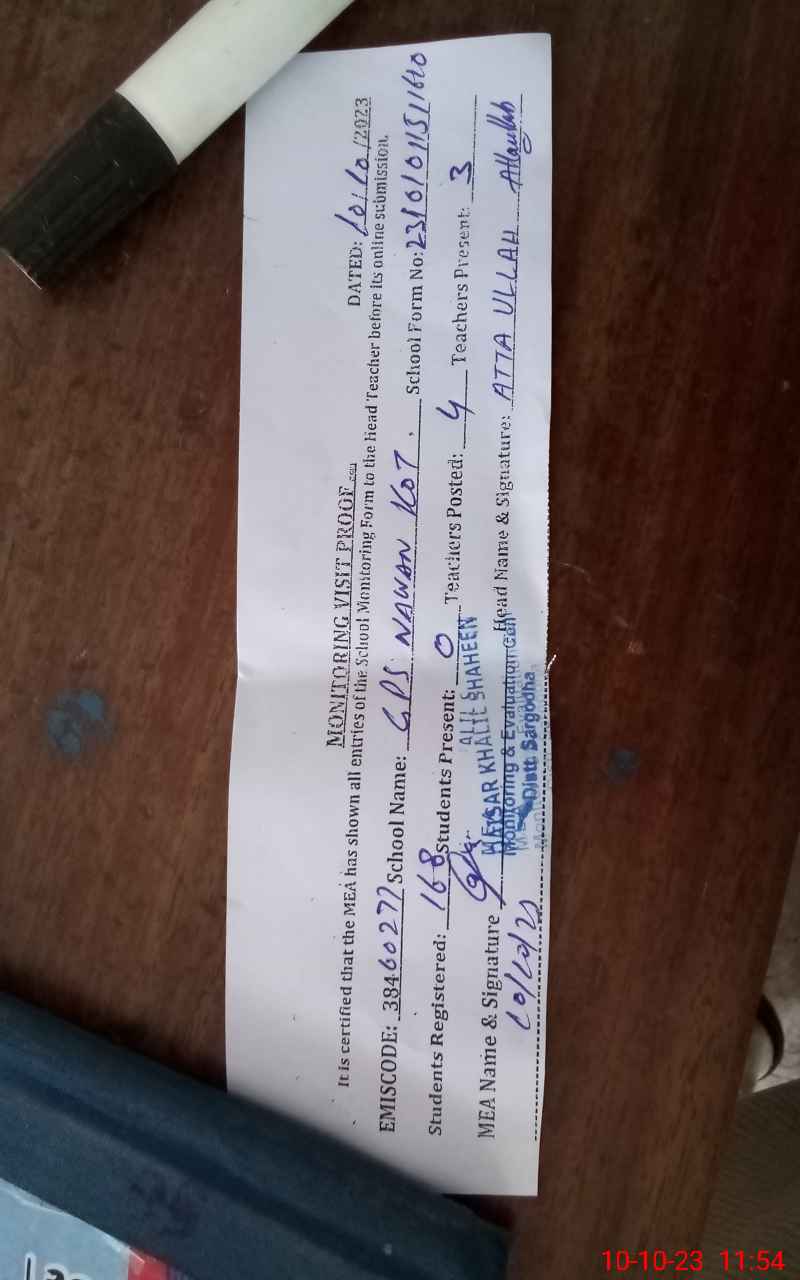 MONITORING VISIT PROOF
DATED: 10/10/2023
It is certified that the MEA has shown all entries of the School Monitoring Form to the Head Teacher before its online submission.
EMISCODE: 38460277 School Name: GPS NAWAN KOT. School Form No: 23101011511610
Students Registered: 168 Students Present: 0 Teachers Posted: 4 Teachers Present: 3
MEA Name & Signature Head Name & Signature: ATTA ULLAH Attaullah
KHALIL SHAHEEN
Monitoring & Evaluation
Distt. Sargodha
10/10/23
10-10-23 11:54